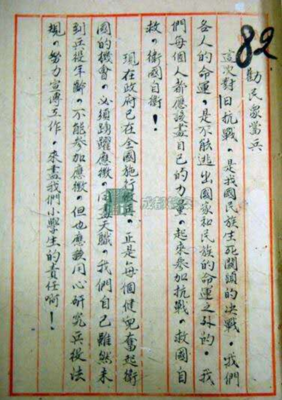 82
勸民眾當兵
這次對日抗戰。是我國民族生死關頭的决戰。我們
各人的命運。是不能逃出國家和民族的命運之外的。我
們每個人都應該盡自己的力量。起來參加抗戰。救國自
救。衛國自衛！
現在政府已在全國施行徵兵。正是每個健兒奮起衛
國的機會。必須踴躍應徵。同盡天職。我們自己雖然未
到兵役年齡。不能參加應徵。但也應該同心研究兵役法
規。努力宣傳工作。來盡我們小學生的責任啊！